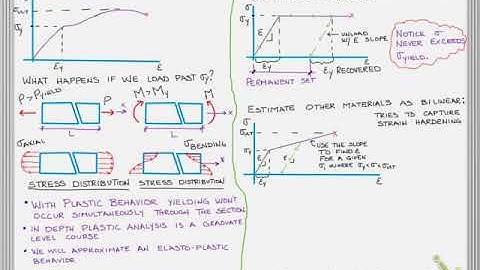 σ
σULT
σy
εy
ε
WHAT HAPPENS IF WE LOAD PAST σy?
P>PYIELD
P
x
L
M>My
M
x
L
σAXIAL
σBENDING
STRESS DISTRIBUTION
STRESS DISTRIBUTION
• WITH PLASTIC BEHAVIOR YIELDING WON'T
OCCUR SIMULTANEOUSLY THROUGH THE SECTION
• IN DEPTH PLASTIC ANALYSIS IS A GRADUATE
LEVEL COURSE
• WE WILL APPROXIMATE AN ELASTO-PLASTIC
BEHAVIOR
σ
σy
E
UNLOAD
W/ E SLOPE
εy
εy RECOVERED
ε
PERMANENT SET
NOTICE σ
NEVER EXCEEDS
σYIELD.
ESTIMATE OTHER MATERIALS AS BILINEAR:
TRIES TO CAPTURE
STRAIN HARDENING
σ
σULT
σy
E
εy
USE THE SLOPE
TO FIND ε
FOR A GIVEN
σ, WHERE σy<σ<σULT
ε